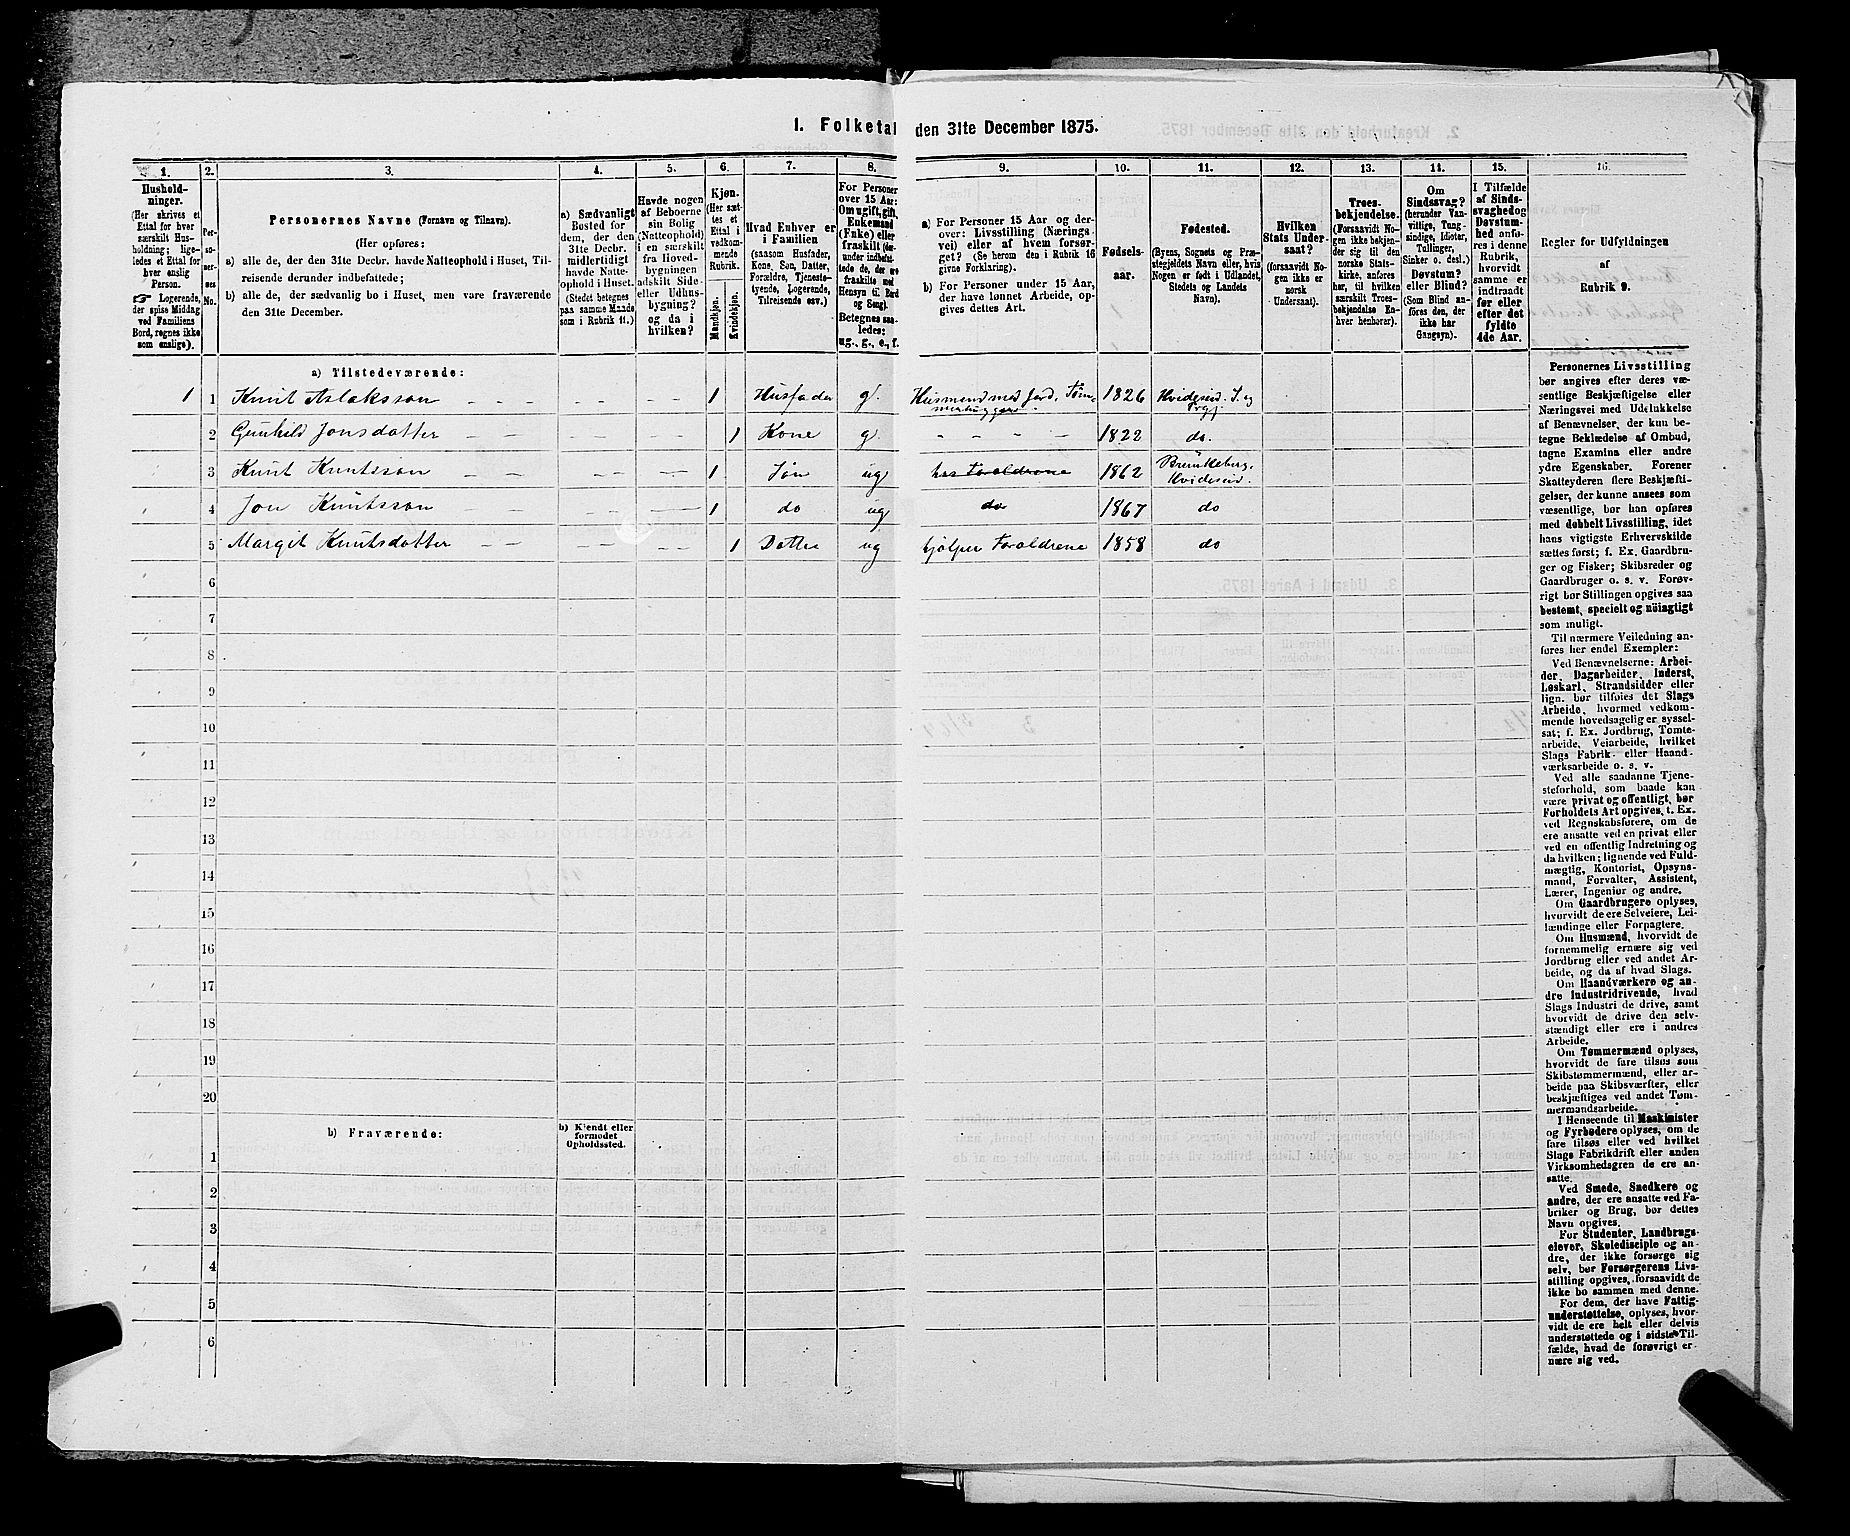 1. Folketal den 31te December 1875.
1. 2. 3. 4. 5. 6. 7. 8. 9. 10. 11. 12. 13. 14. 15. 16.
Hushold-
ninger.
(Her skrives et
Ettal for hver
særskilt Hus-
holdning; lige-
ledes et Ettal for
hver enslig
Person.
☞ Logerende,
der spise Middag
ved Familiens
Bord, regnes ikke
som enslige).
Per-
so-
ner-
nes
No.
Personernes Navne (Fornavn og Tilnavn).
(Her opføres:
a) alle de, der den 31te Decbr. havde Natteophold i Huset, Til-
reisende derunder indbefattede;
b) alle de, der sædvanlig bo i Huset, men vare fraværende
den 31te December.
a) Sædvanligt
Bosted for
dem, der den
31te Decbr.
midlertidigt
havde Natte-
ophold i Huset.
(Stedet betegnes
paa samme Maade
som i Rubrik 11.)
Havde nogen
af Beboerne
sin Bolig
(Natteophold)
i en særskilt
fra Hoved-
bygningen
adskilt Side-
eller Udhus-
bygning?
og da i
hvilken?
Kjøn.
(Her sæt-
tes et
Ettal i
vedkom-
mende
Rubrik.
Mandkjøn.
Kvindekjøn.
Hvad Enhver er
i Familien
(saasom Husfader,
Kone, Søn, Datter,
Forældre, Tjeneste-
tyende, Logerende,
Tilreisende osv.)
For Personer
over 15 Aar:
Om ugift, gift,
Enkemand
(Enke) eller
fraskilt (der-
under indbefat-
tede de, der ere
fraskilte med
Hensyn til Bord
og Seng).
Betegnes saa-
ledes:
ug., g., e., f.
a) For Personer 15 Aar og der-
over: Livsstilling (Nærings-
vei) eller af hvem forsør-
get? (Se herom den i Rubrik 16
givne Forklaring).
b) For Personer under 15 Aar,
der have lønnet Arbeide, op-
gives dettes Art.
Fødsels-
aar.
Fødested.
(Byens, Sognets og Præ-
stegjeldets Navn eller, hvis
Nogen er født i Udlandet,
Stedets og Landets
Navn).
Hvilken
Stats Under-
saat?
(forsaavidt No-
gen ikke er
norsk
Undersaat).
Troes-
bekjendelse.
(Forsaavidt No-
gen ikke bekjen-
der sig til den
norske Stats-
kirke, anføres
her, til hvilken
særskilt Troes-
bekjendelse En-
hver henhører).
Om
Sindssvag?
(herunder Van-
vittige, Tung-
sindige, Idioter,
Tullinger,
Sinker o. desl.)
Døvstum?
eller Blind?
(Som Blind an-
føres den, der
ikke har
Gangsyn).
I Tilfælde
af Sinds-
svaghed og
Døvstum-
hed anfø-
res i denne
Rubrik,
hvorvidt
samme er
indtraadt
før eller
efter det
fyldte
4de Aar.
Regler for Udfyldningen
af
Rubrik 9.
a) Tilstedeværende:
1 1 Knut Aslaksson – – – – – – 1 Husfader g. Husmand med Jord, Tøm- 1826 Hvideseid S. og
merhugger Prgj.
2 Gunhild Jonsdatter – – – – – – 1 Kone g. – – – – 1822 do.
3 Knut Knutsson – – – – – – 1 Søn ug hos Foraldrene 1862 Brunkeberg,
Hvideseid.
4 Jon Knutsson – – – – – 1 do ug do 1867 do
5 Margit Knutsdatter – – – – – – 1 Datter ug hjælper Foraldrene 1858 do
6
7
8
9
10
11
12
13
14
15
16
17
18
19
20
b) Fraværende:
b) Kjendt eller
formodet
Opholdssted.
1
2
3
4
5
6
Personernes Livsstilling
bør angives efter deres væ-
sentlige Beskjæftigelse eller
Næringsvei med Udelukkelse
af Benævnelser, der kun be-
tegne Beklædelse af Ombud,
tagne Examina eller andre
ydre Egenskaber. Forener
Skatteyderen flere Beskjæfti-
gelser, der kunne ansees som
væsentlige, bør han opføres
med dobbelt Livsstilling, idet
hans vigtigste Erhvervskilde
sættes først; f. Ex. Gaardbru-
ger og Fisker; Skibsreder og
Gaardbruger o. s. v. Forøv-
rigt bør Stillingen opgives saa
bestemt, specielt og nöiagtigt
som muligt.
Til nærmere Veiledning an-
føres her endel Exempler:
Ved Benævnelserne: Arbei-
der, Dagarbeider, Inderst,
Løskarl, Strandsidder eller
lign. bør tilføies det Slags
Arbeide, hvormed vedkom-
mende hovedsagelig er syssel-
sat; f. Ex. Jordbrug, Tomte-
arbeide, Veiarbeide, hvilket
Slags Fabrik- eller Haand-
værksarbeide o. s. v.
Ved alle saadanne Tjene-
steforhold, som baade kan
være privat og offentligt, bør
Forholdets Art opgives, t. Ex.
ved Regnskabsførere, om de
ere ansatte ved en privat eller
ved en offentlig Indretning og
da hvilken; lignende ved Fuld-
mægtig, Kontorist, Opsyns-
mand, Forvalter, Assistent,
Lærer, Ingeniør og andre.
Om Gaardbrugere oplyses,
hvorvidt de ere Selveiere, Lei-
lændinge eller Forpagtere.
Om Husmænd, hvorvidt de
fornemmelig ernære sig ved
Jordbrug eller ved andet Ar-
beide, og da af hvad Slags.
Om Haandværkere og an-
dre Industridrivende, hvad
Slags Industri de drive, samt
hvorvidt de drive den selv-
stændigt eller ere i andres
Arbeide.
Om Tømmermænd oplyses,
hvorvidt de fare tilsøs som
Skibstømmermænd, eller ar-
beide paa Skibsværfter, eller
beskjæftiges ved andet Tøm-
mermandsarbeide.
I Henseende til Maskinister
og Fyrbødere oplyses, om de
fare tilsøs eller ved hvilket
Slags Fabrikdrift eller anden
Virksomhedsgren de ere an-
satte.
Ved Smede, Snedkere og
andre, der ere ansatte ved Fa-
briker og Brug, bør dettes
Navn opgives.
For Studenter, Landbrugs-
elever, Skoledisciple og an-
dre, der ikke forsørge sig
selv, bør Forsørgerens Livs-
stilling opgives, forsaavidt de
ikke bo sammen med denne.
For dem, der have Fattig-
understøttelse, oplyses, hvor-
vidt de ere helt eller delvis
understøttede og i sidste Til-
fælde, hvad de forøvrigt er-
nære sig ved.